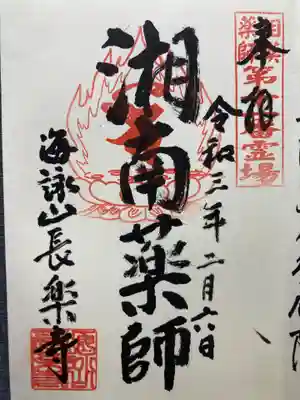 奉拝
相模
薬師
霊場
令和三年二月六日
湘南薬師
海詠山長楽寺